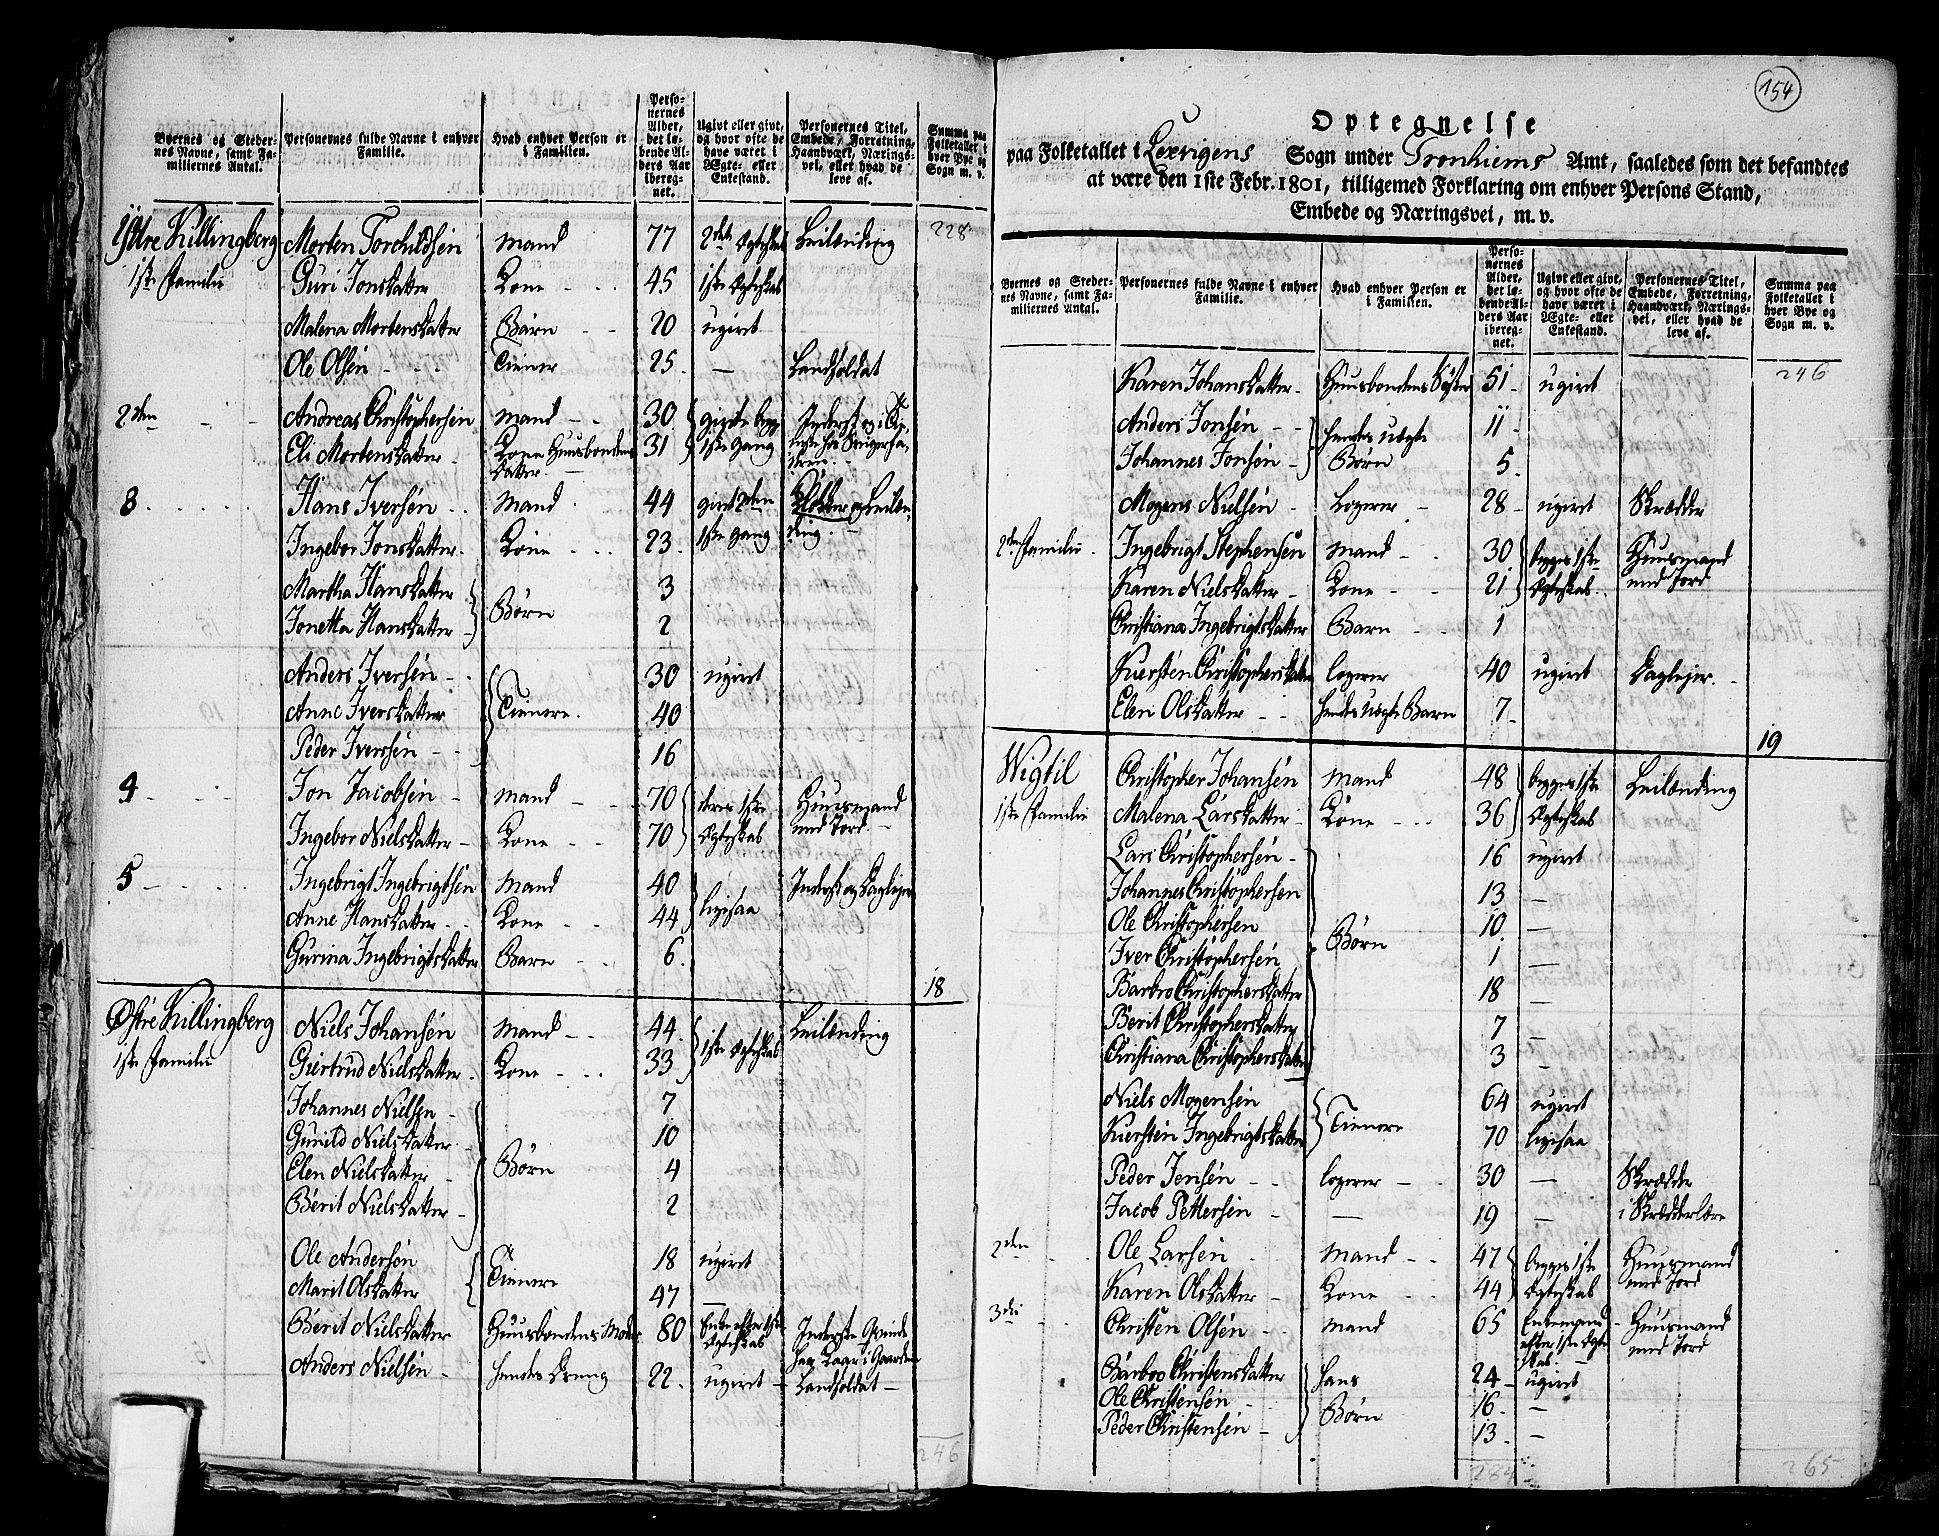 Byernes og Steder-
nes Navne, samt Fa-
miliernes Antal.
Personernes fulde Navne i enhver
Familie.
Hvad enhver Person er
i Familien.
Perso-
nernes
Alder,
det lø-
bende Al-
ders Aar
ibereg-
net.
Ugivt eller givt,
og hvor ofte de
have været i
Ægte- eller
Enkestand.
Personernes Titel,
Embede, Forretning,
Haandværk, Nærings-
vei, eller hvad de
leve af.
Summa paa
Folketallet i
hver Bye og
Sogn m. v.
Ystre Killingberg Morten Torchildsen Mand 77 2det Ægteskab Leilænding 228
1ste Familie Guri Jonsdatter Kone 45 1ste Ægteskab
Malena Mortensdatter Barn 20 ugivt
Ole Olsen Tiener 25 — Landsoldat
2den Andreas Christophersen Mand 30 givte begge
Eli Mortensdatter Kone Huusbondens 31 1ste Gang
datter
3 Hans Iversen Mand 44 givt 2den
Ingebor Jonsdatter Kone 23 1ste Gang
Martha Hansdatter 3
Jonetta Hansdatter Børn 2
Anders Iversen 30 ugivt
Anne Iversdatter Tienere 40
Peder Iversen 16
4 Jon Jacobsen Mand 70 deres 1ste Huusmand
Ingebor Nielsdatter Kone 70 Ægteskab med Jord
5 Ingebrigt Ingebrigtsen Mand 40 ligesaa Inderst og Daglejer
Anne Hansdatter Kone 44
Gurina Ingebrigtsdatter Barn 6
18
Østre Killingberg Niels Johansen Mand 44 1ste Ægteskab Leilænding
1ste Familie Giertrud Nielsdatter Kone 33
Johannes Nielsen 7
Gunild Nielsdatter 10
Elen Nielsdatter Børn 4
Berit Nielsdatter 2
Ole Andersen 18 ugivt
Marit Olsdatter Tienere 47 —
Berit Nielsdatter Huusbondens Moder 80 Enke efter 1ste
Ægteskab
Anders Nielsen hendes Dreng 22 ugivt Landsoldat
246
154
Optegnelse
paa Folketallet i Lexvigens Sogn under Tronhiems Amt, saaledes som det befandtes
at være den 1ste Febr. 1801, tilligemed Forklaring om enhver Persons Stand,
Embede og Næringsvei, m. v.
Byernes og Steder-
nes Navne, samt Fa-
miliernes Antal.
Personernes fulde Navne i enhver
Familie.
Hvad enhver Person er
i Familien.
Perso-
nernes
Alder,
det lø-
bende Al-
ders Aar
ibereg-
net.
Ugivt eller givt,
og hvor ofte de
have været i
Ægte- eller
Enkestand.
Personernes Titel,
Embede, Forretning,
Haandværk, Nærings-
vei, eller hvad de
leve af.
Summa paa
Folketallet i
hver Bye og
Sogn m. v.
Karen Johansdatter Huusbondens Søster 51 ugivt 246
Anders Jonsen hendes uægte 11
Johannes Jonsen Børn 5
Mogens Nielsen Logerer 28 ugivt Skrædder
2den Familie Ingebrigt Stephensen Mand 30 begges 1ste Huusmand
Karen Nielsdatter Kone 21 Ægteskab med Jord
Christiana Ingebrigtsdatter Barn 1
Kiersten Christophersdatter logerer 40 ugivt Daglejer
Elen Olsdatter hendes uægte Barn 7
19
Wigtil Christopher Johansen Mand 48 begges 1ste Leilænding
1ste Familie Malena Larsdatter Kone 36 Ægteskab
Lars Christophersen 16 ugivt
Johannes Christophersen 13 —
Ole Christophersen 10 —
Iver Christophersen Børn 1 —
Barbro Christophersdatter 18 —
Berit Christophersdatter 7 —
Christiana Christophersdatter 3 —
Niels Mogensen 64 ugivt
Kiersten Ingebrigtsdatter Tienere 70 ligesaa
Peder Jensen logerer 30 — Skrædder
Jacob Pettersen — 19 — i Skrædderlære
2den Ole Larsen Mand 47 begges 1ste Huusmand
Karen Olsdatter Kone 44 Ægteskab med Jord
3die Christen Olsen Mand 65 Enkemand Huusmand
efter 1ste Ægte med Jord
skab
Barbro Christensdatter hans 24 ugivt
Ole Christensen Børn 16 —
Peder Christensen 13 —
284 265